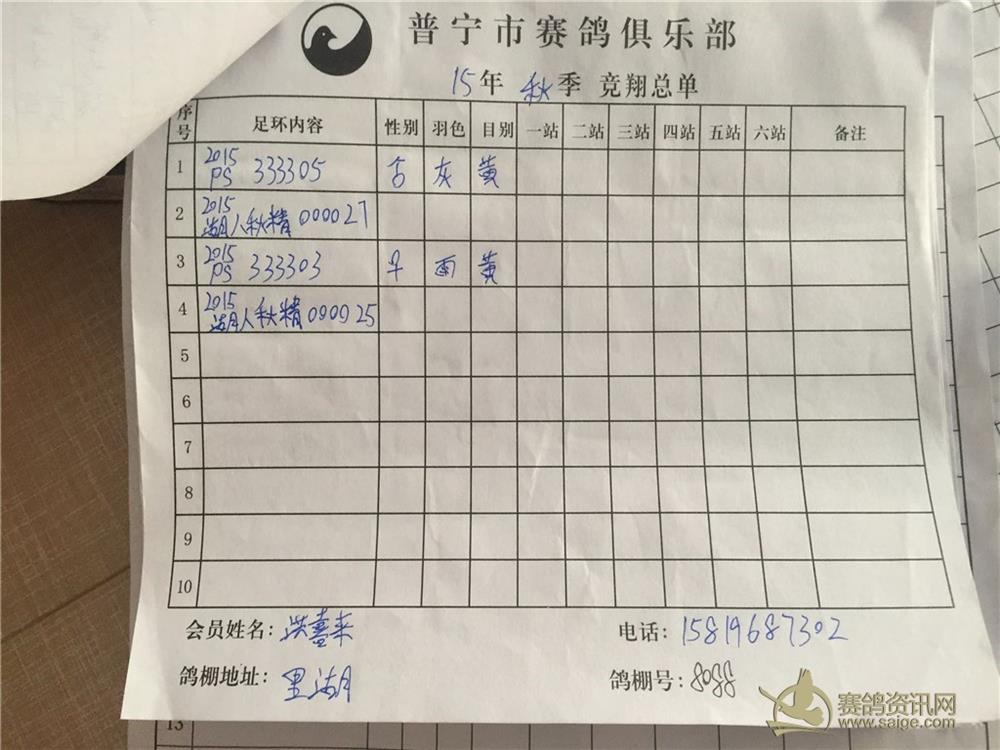 普宁市赛鸽俱乐部
15年 秋季 竞翔总单
序号 足环内容 性别 羽色 目别 一站 二站 三站 四站 五站 六站 备注
1 2015 PS 333305 灰 黄
2 2015 湖人秋精 000027
3 2015 PS 333303 雨 黄
4 2015 湖人秋精 000025
5
6
7
8
9
10
会员姓名: 洪喜来 电话: 15819687302
鸽棚地址: 里湖 鸽棚号: 8088
13
赛鸽资讯网
www.saige.com